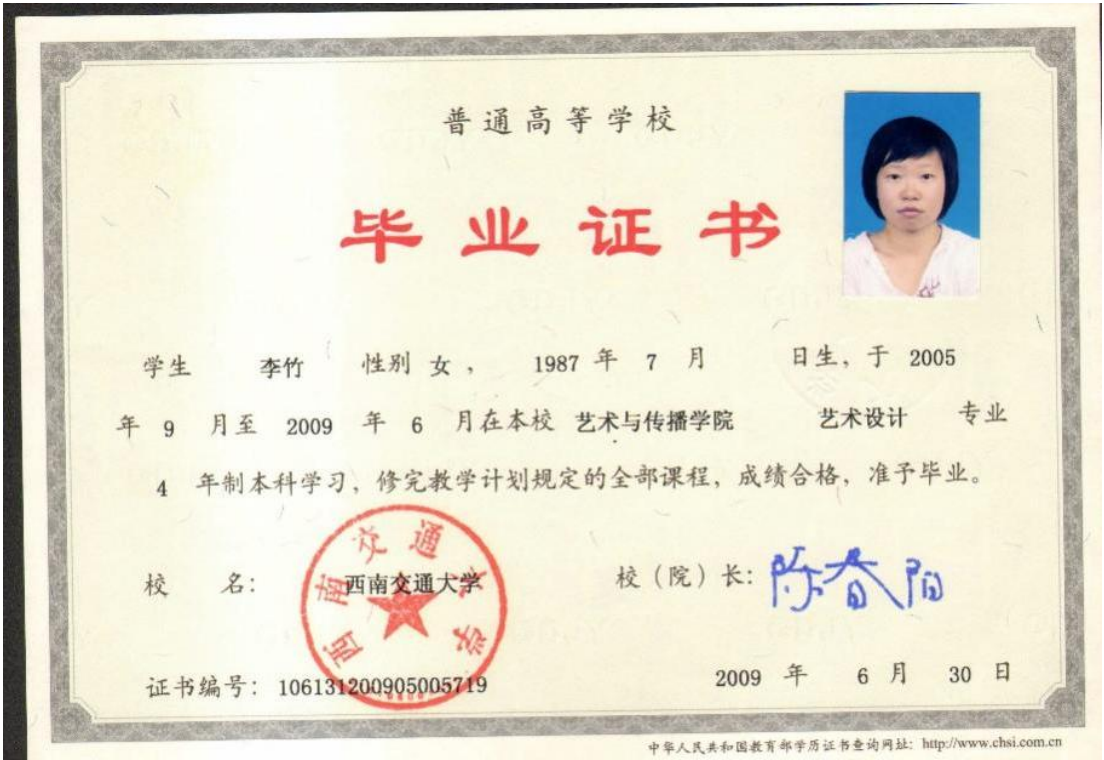 普通高等学校
毕业证书
学生 李竹 性别 女， 1987 年 7 月 日生，于 2005
年 9 月至 2009 年 6 月在本校 艺术与传播学院 艺术设计 专业
4 年制本科学习，修完教学计划规定的全部课程，成绩合格，准予毕业。
西南交通大学
校 名： 西南交通大学 校（院）长： 陈春阳
证书编号： 106131200905005719 2009 年 6 月 30 日
中华人民共和国教育部学历证书查询网址： http://www.chsi.com.cn